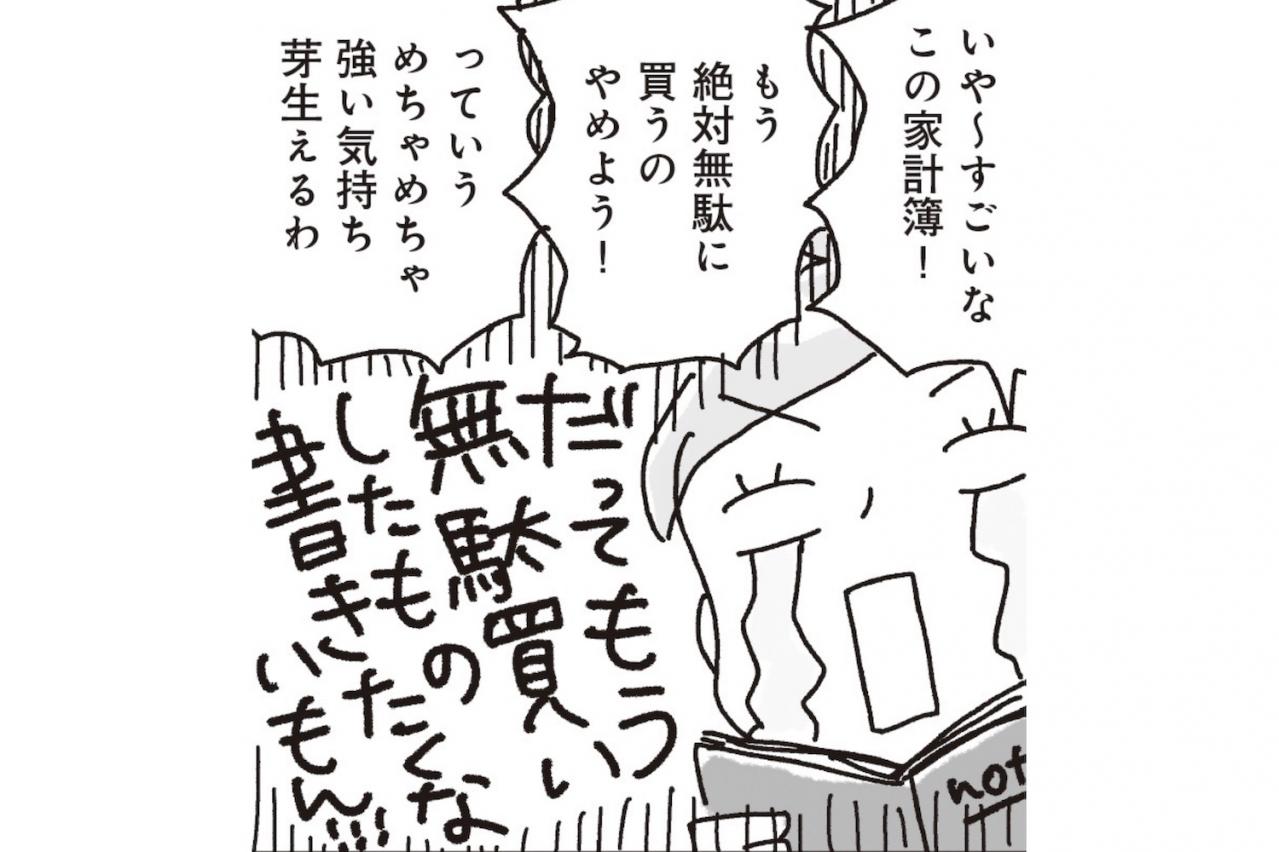 いや～すごいな
この家計簿！
もう
絶対無駄に
買うの
やめよう！
っていう
めちゃめちゃ
強い気持ち
芽生えるわ
だってもう
無駄買い
したもの
書きたくな
いもん…!!
not